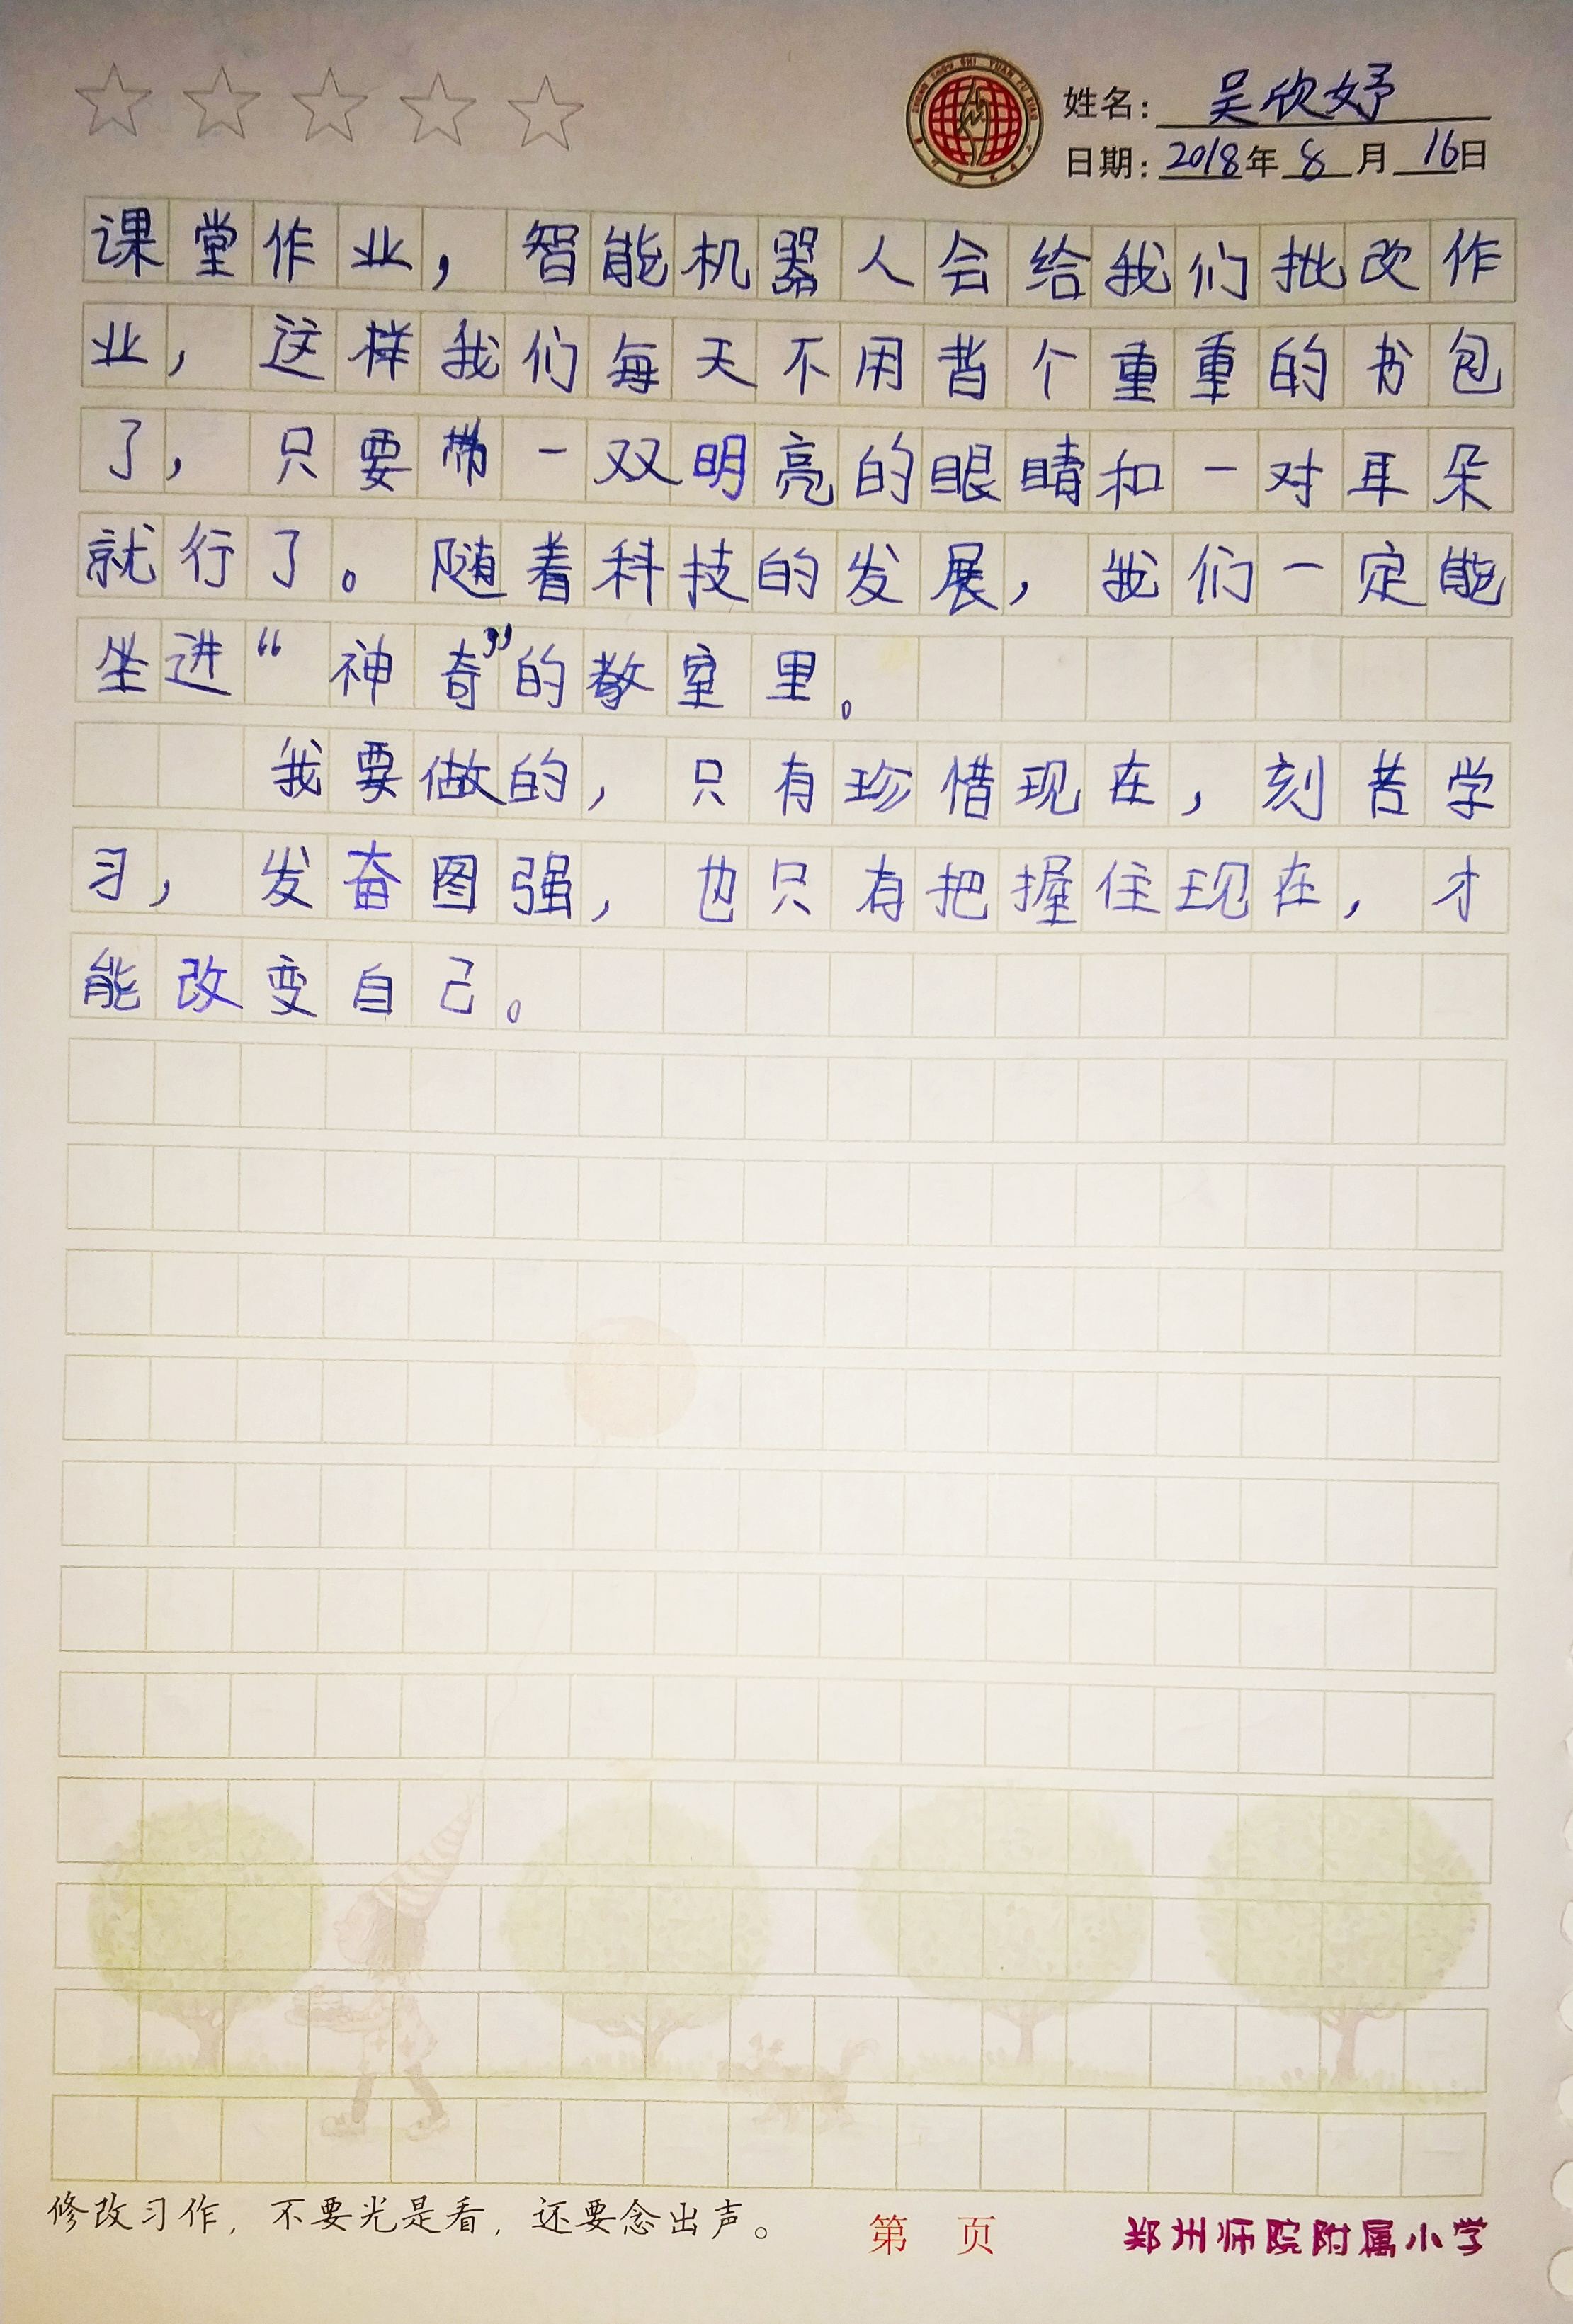 姓名：吴欣妤
日期：2018年8月16日
课堂作业，智能机器人会给我们批改作
业，这样我们每天不用背个重重的书包
了，只要带一双明亮的眼睛和一对耳朵
就行了。随着科技的发展，我们一定能
坐进“神奇”的教室里。
我要做的，只有珍惜现在，刻苦学
习，发奋图强，也只有把握住现在，才
能改变自己。
修改习作，不要光是看，还要念出声。
第 页
郑州师院附属小学